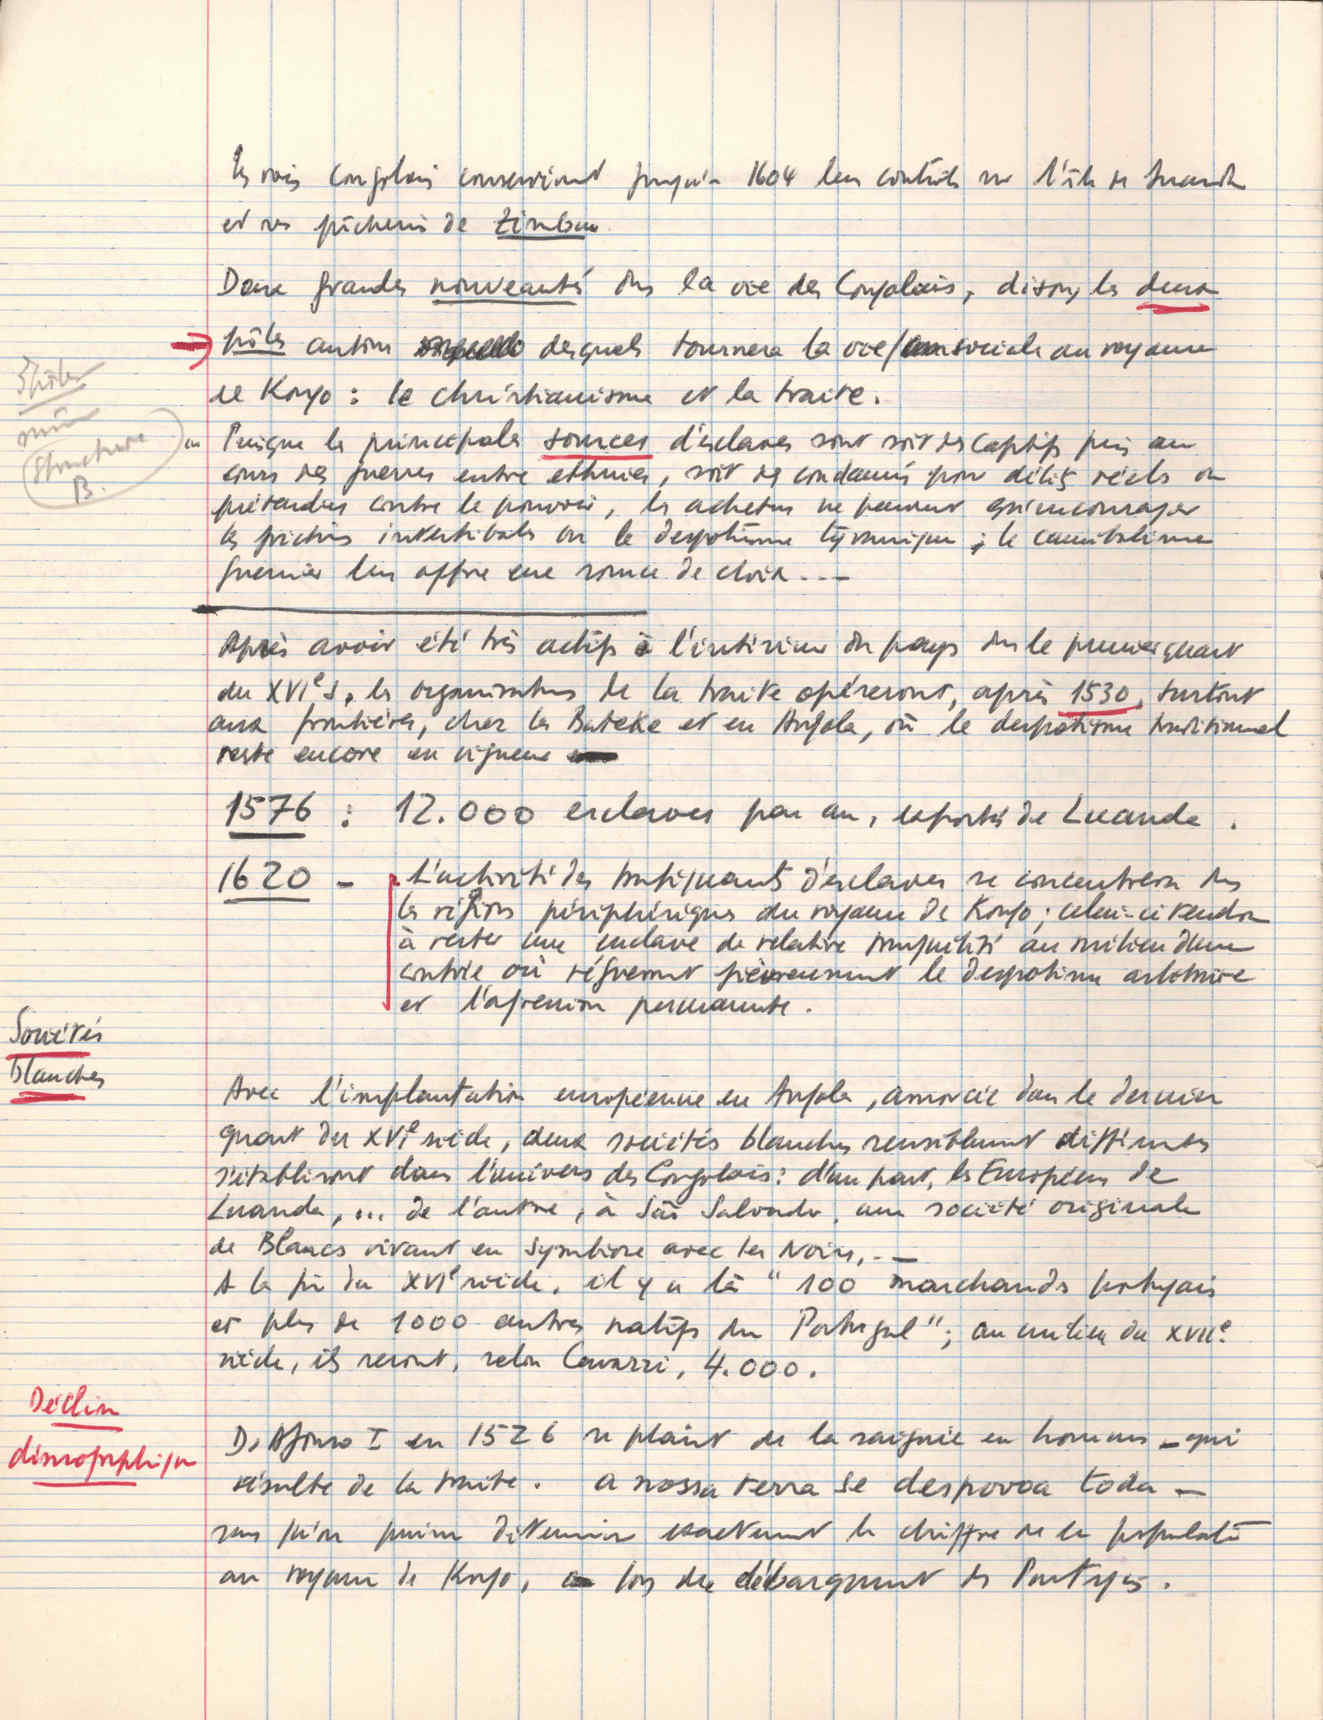 Les rois congolais conserveront jusqu'en 1604 leur contrôle sur l'île de Luanda
et ses pêcheries de zimbu
Deux grandes nouveautés dans la vie des Congolais, disons, les deux
pôles autour desquels tournera la vie sociale au royaume
de Kongo : le christianisme et la traite.
Puisque les principales sources d'esclaves sont soit des captifs pris au
cours des guerres entre ethnies, soit des condamnés pour délits réels ou
prétendus contre le pouvoir, les acheteurs ne peuvent qu'encourager
les frictions intertribales ou le despotisme tyrannique ; le cannibalisme
guerrier leur offre une source de choix...
Après avoir été très actifs à l'intérieur du pays dans le premier quart
du XVIe s, les organisateurs de la traite opéreront, après 1530, surtout
aux frontières, chez les Bateke et en Angola, où le despotisme traditionnel
reste encore en vigueur
1576 : 12.000 esclaves par an, exportés de Luanda.
1620 - L'activité des trafiquants d'esclaves se concentrera dans
les régions périphériques du royaume de Kongo ; celui-ci tendra
à rester une enclave de relative tranquillité au milieu d'une
contrée où régneront le despotisme arbitraire
et l'agression permanente.
Sociétés
blanches
Avec l'implantation européenne en Angola, amorcée dans le dernier
quart du XVIe siècle, deux sociétés blanches sensiblement différentes
s'établiront dans l'univers des Congolais : d'un part, les Européens de
Luanda, ... de l'autre, à São Salvador, une société originale
de Blancs vivant en symbiose avec les Noirs, ...
A la fin du XVIe siècle, il y a là "100 marchands portugais
et plus de 1000 autres natifs du Portugal" ; au milieu du XVIIe
siècle, ils seront, selon Cavazzi, 4.000.
Déclin
démographique
D. Afonso I en 1526 se plaint de la saignée en hommes - qui
résulte de la traite. a nossa terra se despovoa toda -
sans qu'on puisse déterminer exactement le chiffre de la populatº
au royaume de Kongo, lors du débarquement des Portugais.